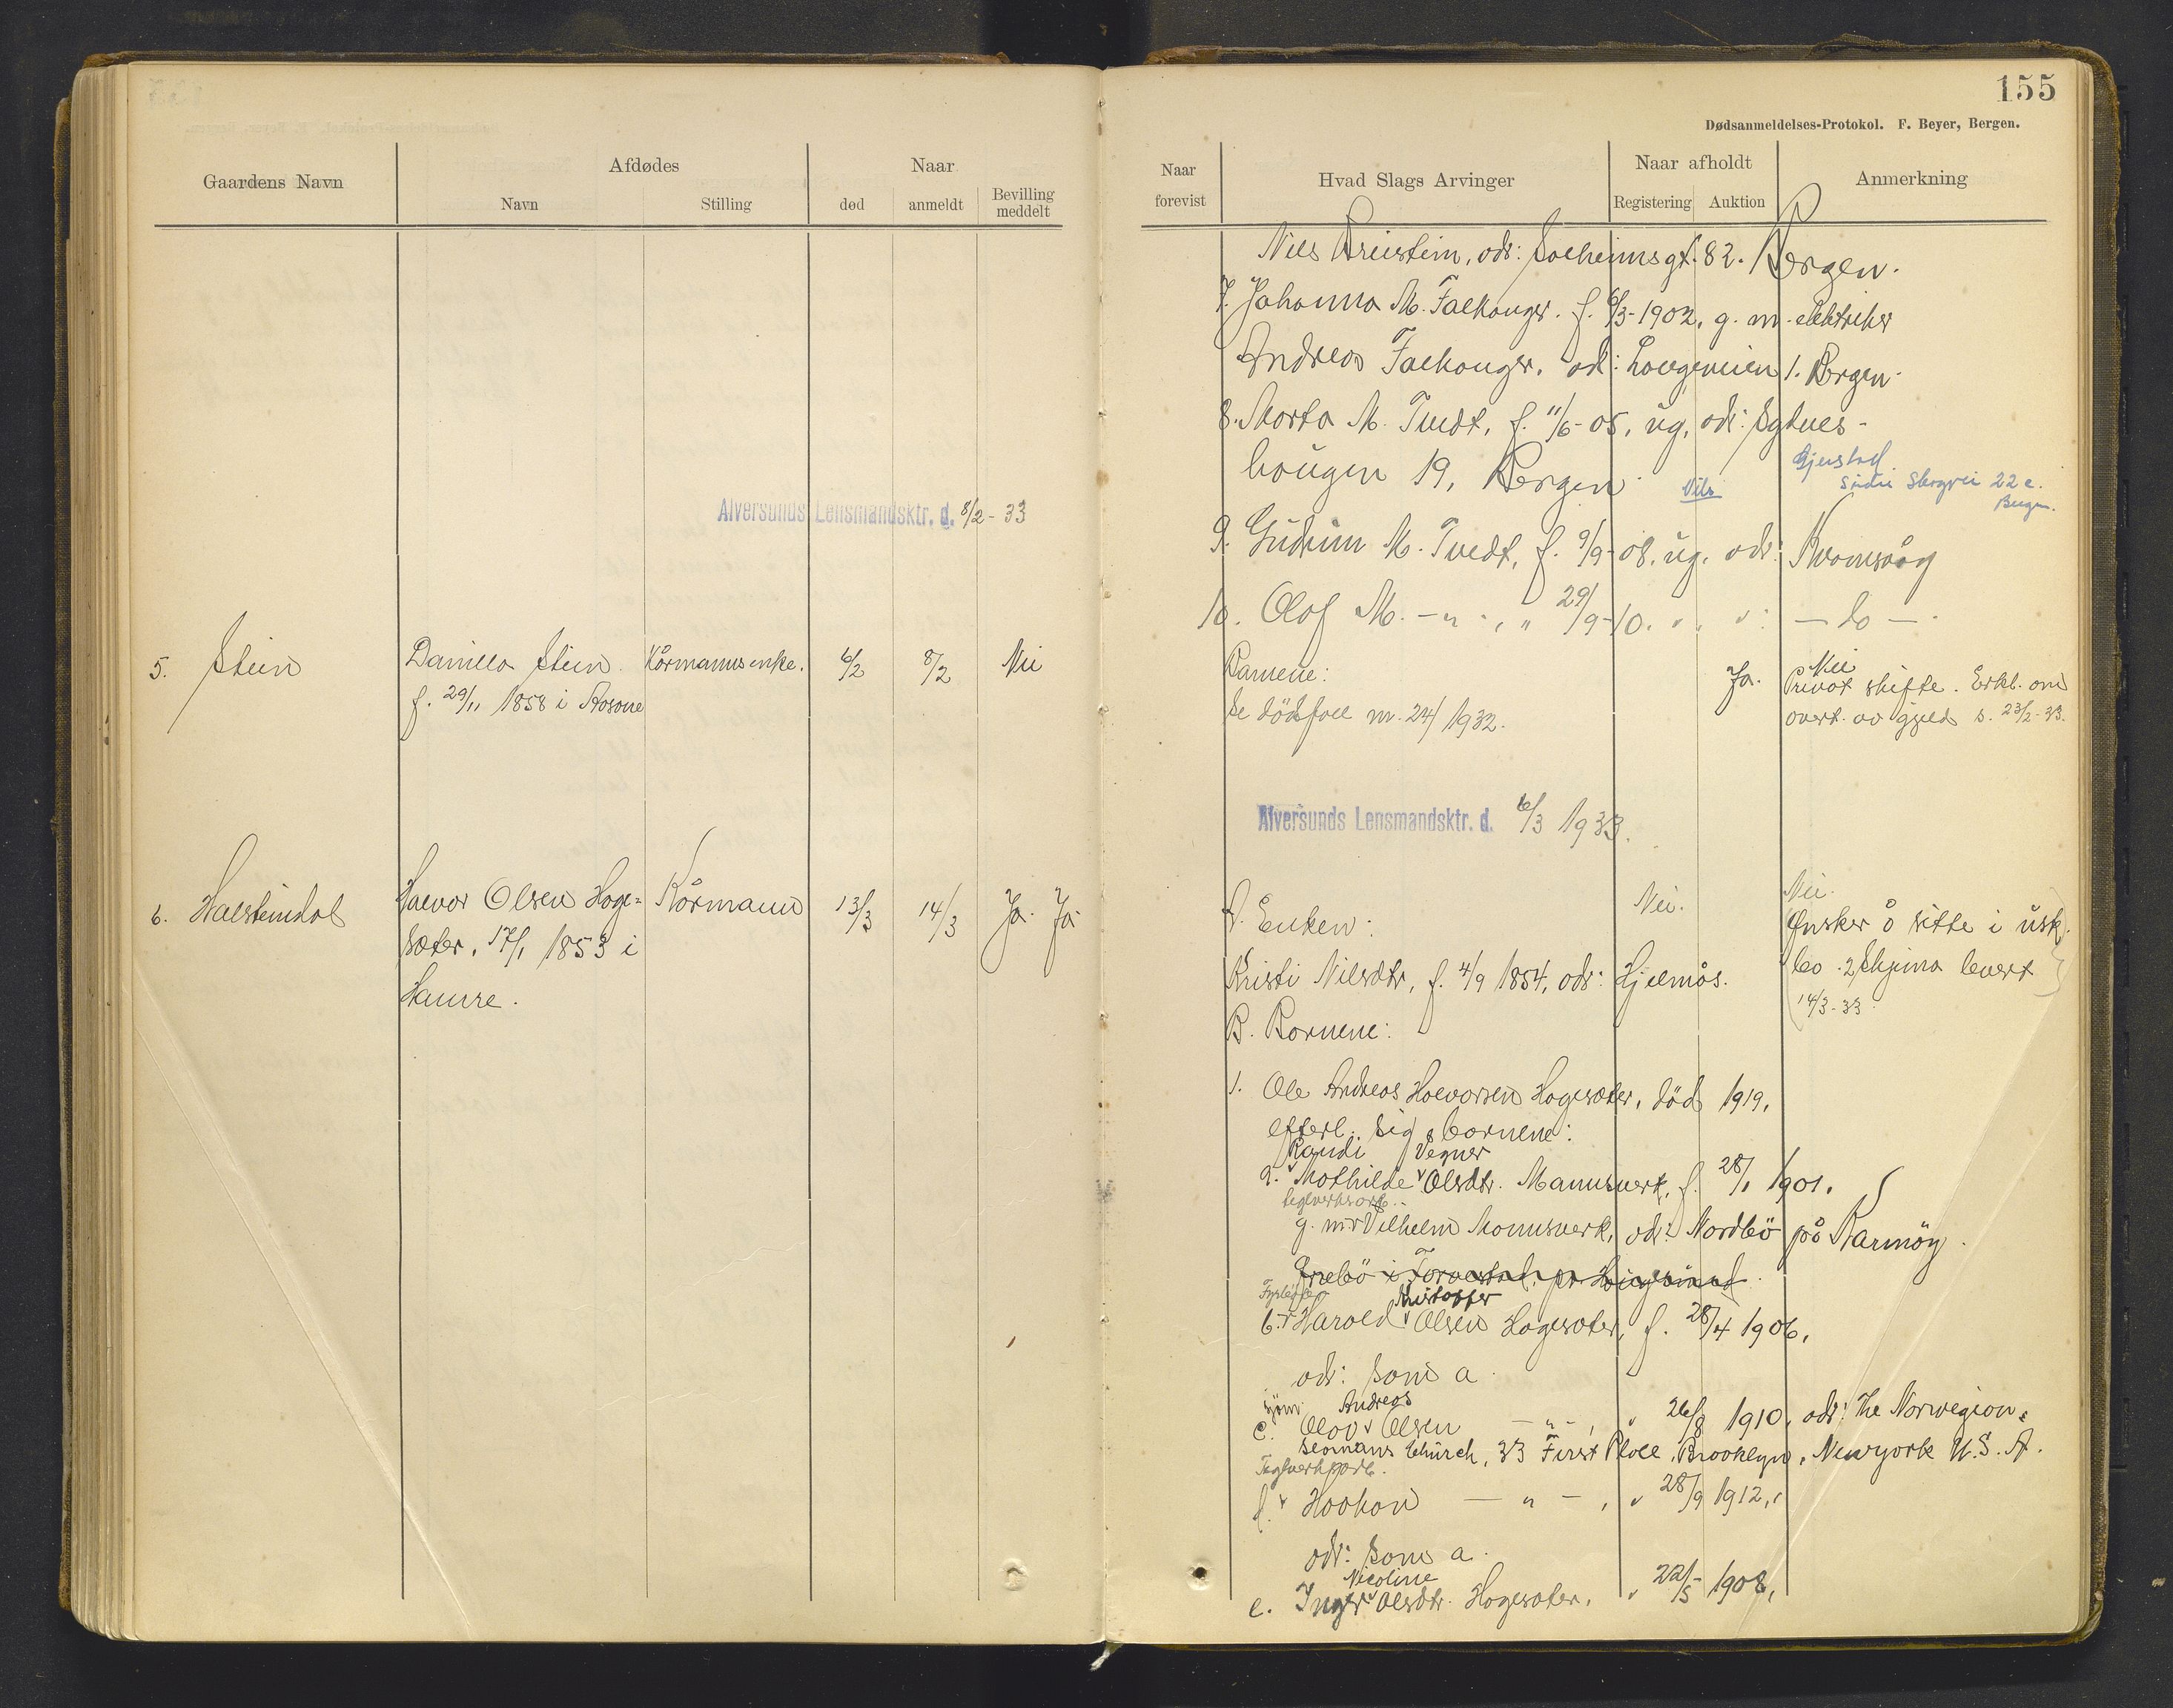 155
Dødsanmeldelses-Protokol. F. Beyer, Bergen.
Gaardens Navn
Afdødes
Navn
Stilling
Naar
død
anmeldt
Bevilling meddelt
Alversunds Lensmandsktr. d. 8/2 - 33
5. Stein
Daniella Stein.
f. 29/11 1858 i
Kårmannsenke.
6/2
8/2
Nei
6. Halsteindal
Halvor Olsen Hoge=
sæter, 17/1 1853 i
Hamre.
Kårmann
13/3
14/3
Ja. Ja
Naar forevist
Hvad Slags Arvinger
Naar afholdt
Registering
Auktion
Anmerkning
Nils Breistein, adr: Solheimsgt. 82. Bergen.
7. Johanna M. Falkanger. f. 6/3-1902, g. m. elektriker
Andreas Falkanger, adr: 1. Bergen.
8. Marta M. Tvedt, f. 11/6-05, ug, adr: Sydnes-
haugen 19, Bergen.
Gjerstad.
Nils
22 c.
Bergen.
9. Gudrun M. Tvedt, f. 9/9-08, ug. adr: Kvamsvåg
10. Olaf M. — " — , " 29/9-10. " . " : — do — .
Barnene:
Se dödsfall nr. 24/1932.
Ja.
Nei
Privat skifte. Erkl. om
overt. av gjeld s. 23/2-33.
Alversunds Lensmandsktr. d. 6/3 1933.
A. Enken:
Nei.
Nei.
Ønsker å sitte i usk.
bo. 2 Skjema levert
14/3-33
Kristi Nilsdtr, f. 4/9 1854, adr: Hjelmås.
B. Barnene:
1. Ole Andreas Halvorsen Hogesæter, död 1919,
efterl. sig barnene:
Randi Vegner
a. Mathilde Olsdtr. Mannsverk, f. 28/1 1901.
teglverksarb.
g. m. Vilhelm Monsverk, adr: Nordbö på Karmöy.
Kristoffer
b. Harald Olsen Hogesæter, f. 28/4 1906,
adr: som a.
sjöm. Andreas
c. Olav Olsen — " — , " 26/8 1910, adr: The Norwegian
Seamans Church, 33 First Place, Brooklyn, Newyork U.S.A.
Teglverksarb.
d. Haakon — " — , " 28/9 1912,
adr: som a.
Nicoline
e. Inger Olsdtr. Hogesæter, " 22/5 1908,